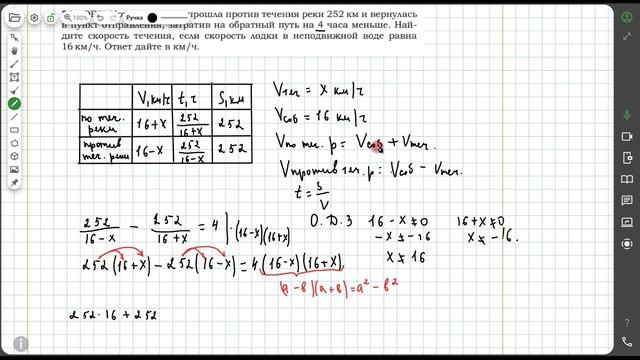 прошла против течения реки 252 км и вернулась
в пункт отправления, затратив на обратный путь на 4 часа меньше. Най-
дите скорость течения, если скорость лодки в неподвижной воде равна
16 км/ч. Ответ дайте в км/ч.
100%
Ручка
V, км/ч t, ч S, км
по теч. реки 16+x 252/(16+x) 252
против теч. реки 16-x 252/(16-x) 252
Vтеч = x км/ч
Vсоб = 16 км/ч
Vпо теч. р = Vсоб + Vтеч.
Vпротив теч. р: Vсоб - Vтеч.
t = S/V
252/(16-x) - 252/(16+x) = 4 | ·(16-x)(16+x)
252(16+x) - 252(16-x) = 4(16-x)(16+x)
(a-b)(a+b) = a² - b²
О.Д.З 16-x≠0 16+x≠0
-x≠-16 x≠-16.
x≠16
252·16 + 252